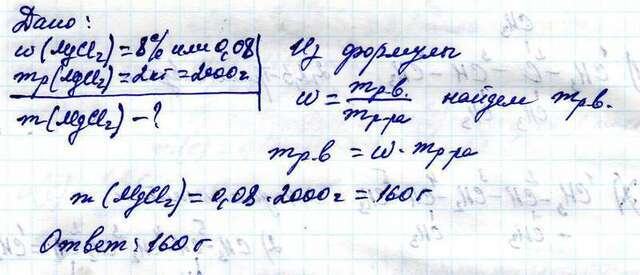 Дано:
w(MgCl₂) = 8% или 0,08
mр(MgCl₂) = 2кг = 2000г
m(MgCl₂) – ?
Из формулы
w = mр.в. / mр-ра найдем mр.в.
mр.в = w · mр-ра
m(MgCl₂) = 0,08 · 2000г = 160г
Ответ: 160г